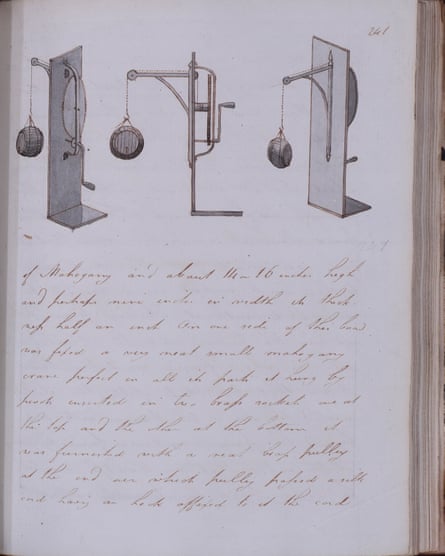 241
of Mahogany and about 14 or 16 inches high
and perhaps nine inches in width its thick
ness half an inch On one side of this
was fixed a very neat small mahogany
crane perfect in all its parts it hung by
pivots inserted in two brass sockets one at
the top and the other at the bottom it
was furnished with a neat brass pulley
at the end over which pulley passed a silk
cord having an hook affixed to it the cord